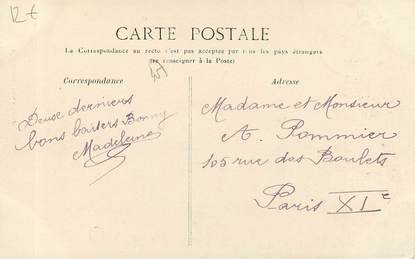 12 €
CARTE POSTALE
La Correspondance au recto n'est pas acceptée par tous les pays étrangers
(se renseigner à la Poste)
45
Correspondance
Adresse
Deux derniers
bons baisers Bonny
Madeleine
Madame et Monsieur
A. Pommier
105 rue des Boulets
Paris XIe